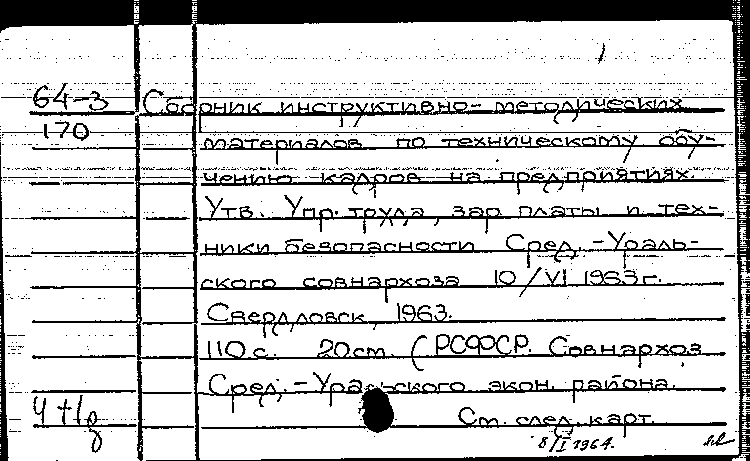 1
64-3 Сборник инструктивно-методических
170 материалов по техническому обу-
чению кадров на предприятиях.
Утв. Упр. труда, зар платы и тех-
ники безопасности Сред.-Ураль-
ского совнархоза 10/VI 1963 г.
Свердловск, 1963.
110 с. 20 см. (РСФСР. Совнархоз
Сред.-Уральского экон. района.
Ст. след. карт.
8/I 1964.